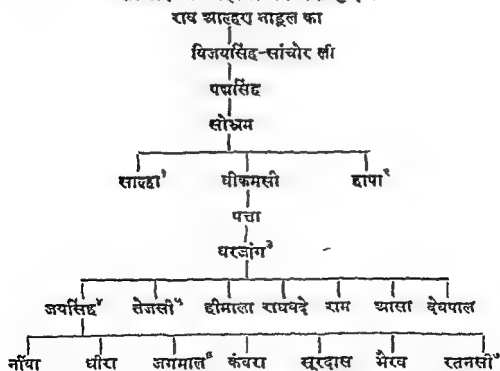 राव आल्हण नाडूल का
विजयसिंह-सांचोर ली
पद्मसिंह
सोभ्रम
साल्हा१ वीकमसी हापा२
पत्ता
वरजांग३
जयसिंह४ तेजसी५ हीमाला राघवदे राम आसा देवपाल
नींवा वीरा जगमाल६ कंवरा सूरदास भैरव रतनसी७